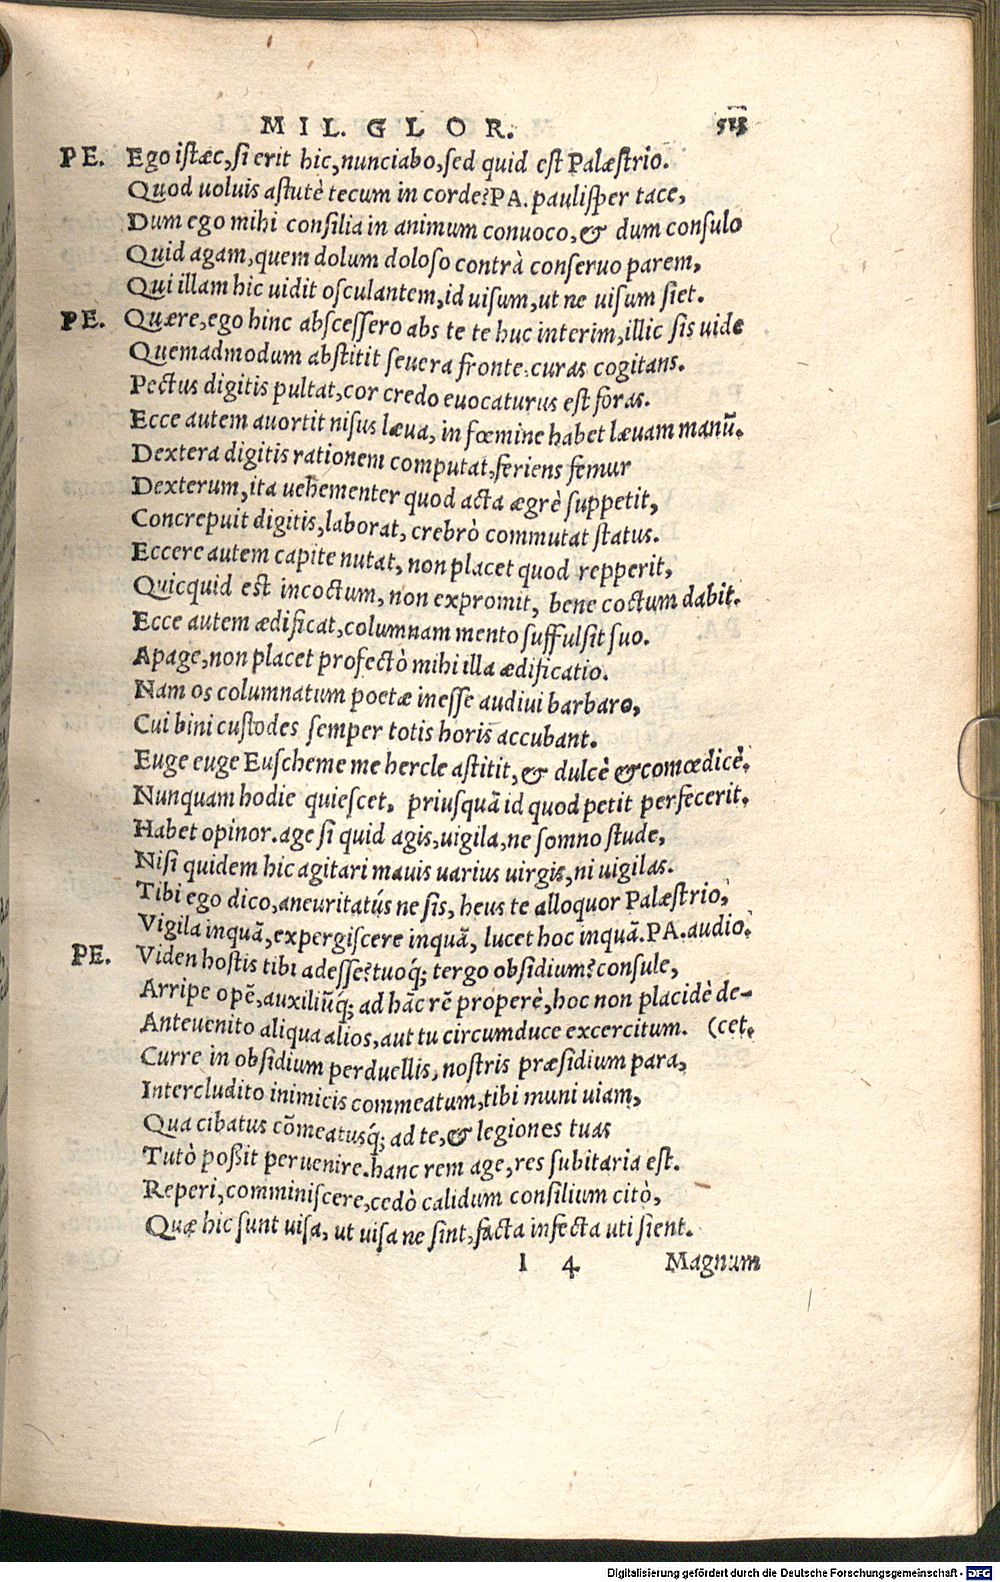 MIL. GLOR. 513
PE. Ego istæc, si erit hic, nunciabo, sed quid est Palæstrio.
Quod uoluis astutè tecum in corde? PA. paulisper tace,
Dum ego mihi consilia in animum conuoco, & dum consulo
Quid agam, quem dolum doloso contrà conseruo parem,
Qui illam hic uidit osculantem, id uisum, ut ne uisum siet.
PE. Quære, ego hinc abscessero abs te te huc interim, illic sis uide
Quemadmodum abstitit seuera fronte curas cogitans.
Pectus digitis pultat, cor credo euocaturus est foras.
Ecce autem auortit nisus læua, in fœmine habet læuam manū.
Dextera digitis rationem computat, feriens femur
Dexterum, ita uehementer quod acta ægrè suppetit,
Concrepuit digitis, laborat, crebrò commutat status.
Eccere autem capite nutat, non placet quod repperit,
Quicquid est incoctum, non expromit, bene coctum dabit.
Ecce autem ædificat, columnam mento suffulsit suo.
Apage, non placet profectò mihi illa ædificatio.
Nam os columnatum poetæ inesse audiui barbaro,
Cui bini custodes semper totis horis accubant.
Euge euge Euscheme me hercle astitit, & dulcè & comœdicè.
Nunquam hodie quiescet, priusquā id quod petit perfecerit.
Habet opinor. age si quid agis, uigila, ne somno stude,
Nisi quidem hic agitari mauis uarius uirgis, ni uigilas.
Tibi ego dico, aneuritatús ne sis, heus te alloquor Palæstrio,
Vigila inquā, expergiscere inquā, lucet hoc inquā. PA. audio.
PE. Viden hostis tibi adesse? tuoq́; tergo obsidium? consule,
Arripe opē, auxiliūq́; ad hāc rē properè, hoc non placidè de-
Anteuenito aliqua alios, aut tu circumduce excercitum. (cet.
Curre in obsidium perduellis, nostris præsidium para,
Intercludito inimicis commeatum, tibi muni uiam,
Qua cibatus cōmeatusq́; ad te, & legiones tuas
Tutò poßit peruenire. hanc rem age, res subitaria est.
Reperi, comminiscere, cedò calidum consilium citò,
Quæ hic sunt uisa, ut uisa ne sint, facta infecta uti sient.
I 4 Magnum
Digitalisierung gefördert durch die Deutsche Forschungsgemeinschaft - DFG